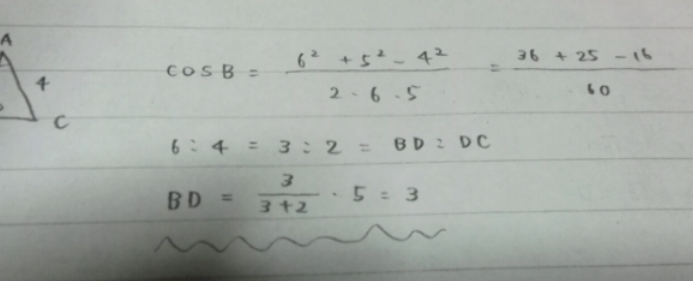 A
4
C
cos B = (6² + 5² - 4²) / (2 · 6 · 5) = (36 + 25 - 16) / 60
6 : 4 = 3 : 2 = BD : DC
BD = 3 / (3 + 2) · 5 = 3